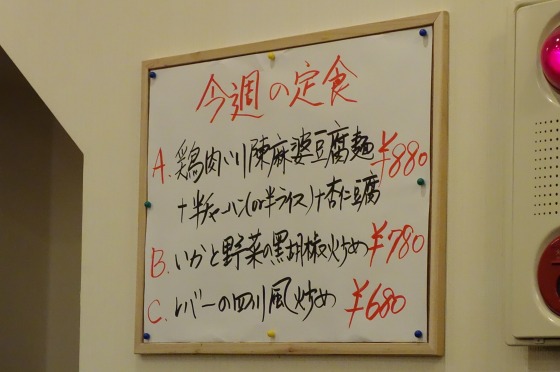 今週の定食
A. 鶏肉入り陳麻婆豆腐麺 ¥880
+半チャーハン(or半ライス)+杏仁豆腐
B. いかと野菜の黒胡椒炒め ¥780
C. レバーの四川風炒め ¥680